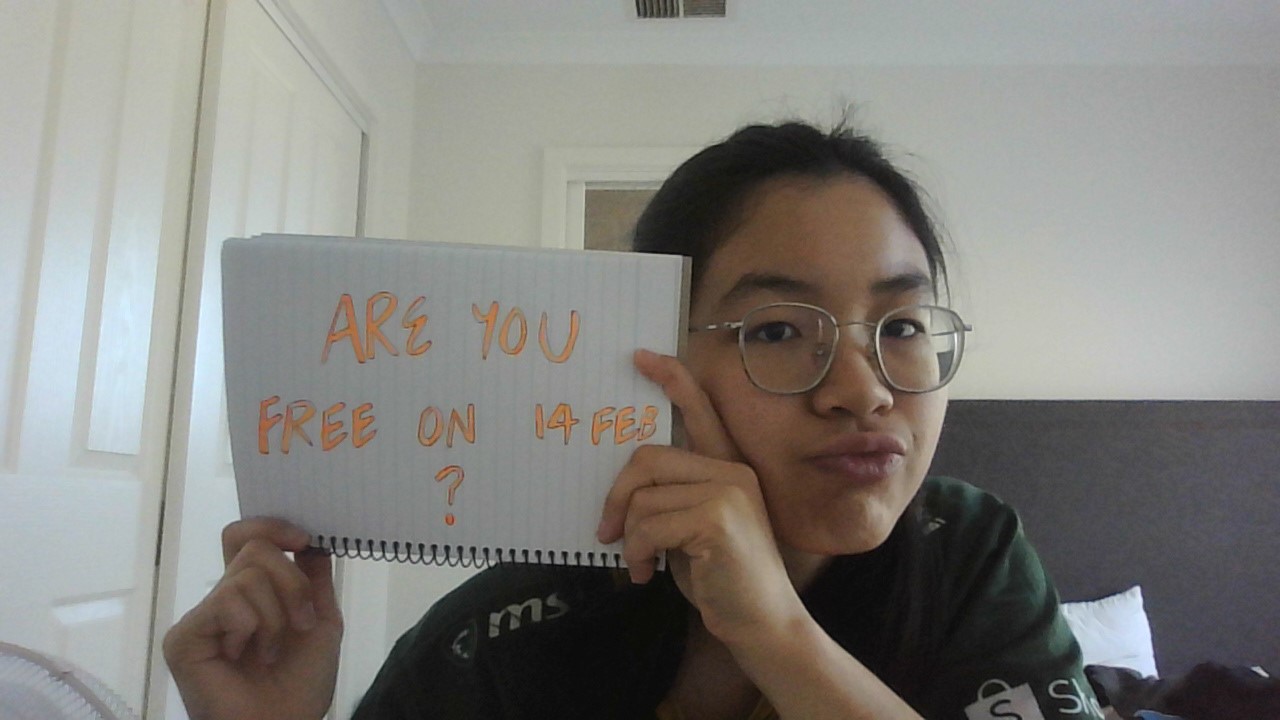 ARE YOU
FREE ON 14 FEB
?
msi
S